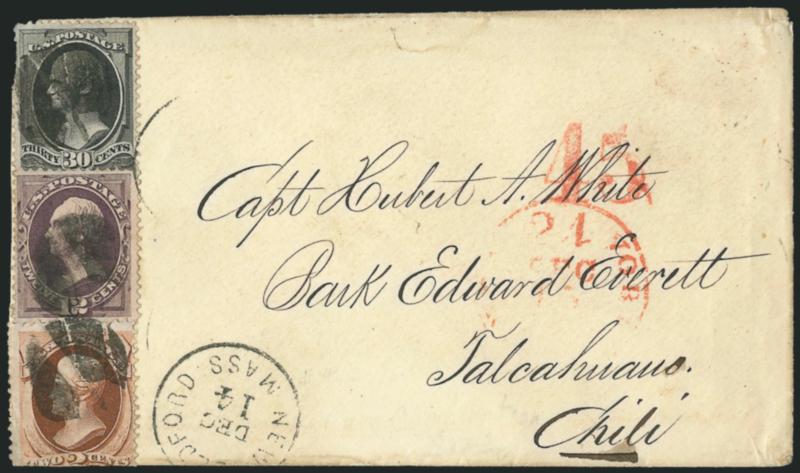 U.S. POSTAGE
THIRTY 30 CENTS
U.S. POSTAGE
TWELVE CENTS
45
Capt Hubert A. White
Bark Edward Everett
Talcahuano.
Chili
NEW BEDFORD MASS
DEC
14